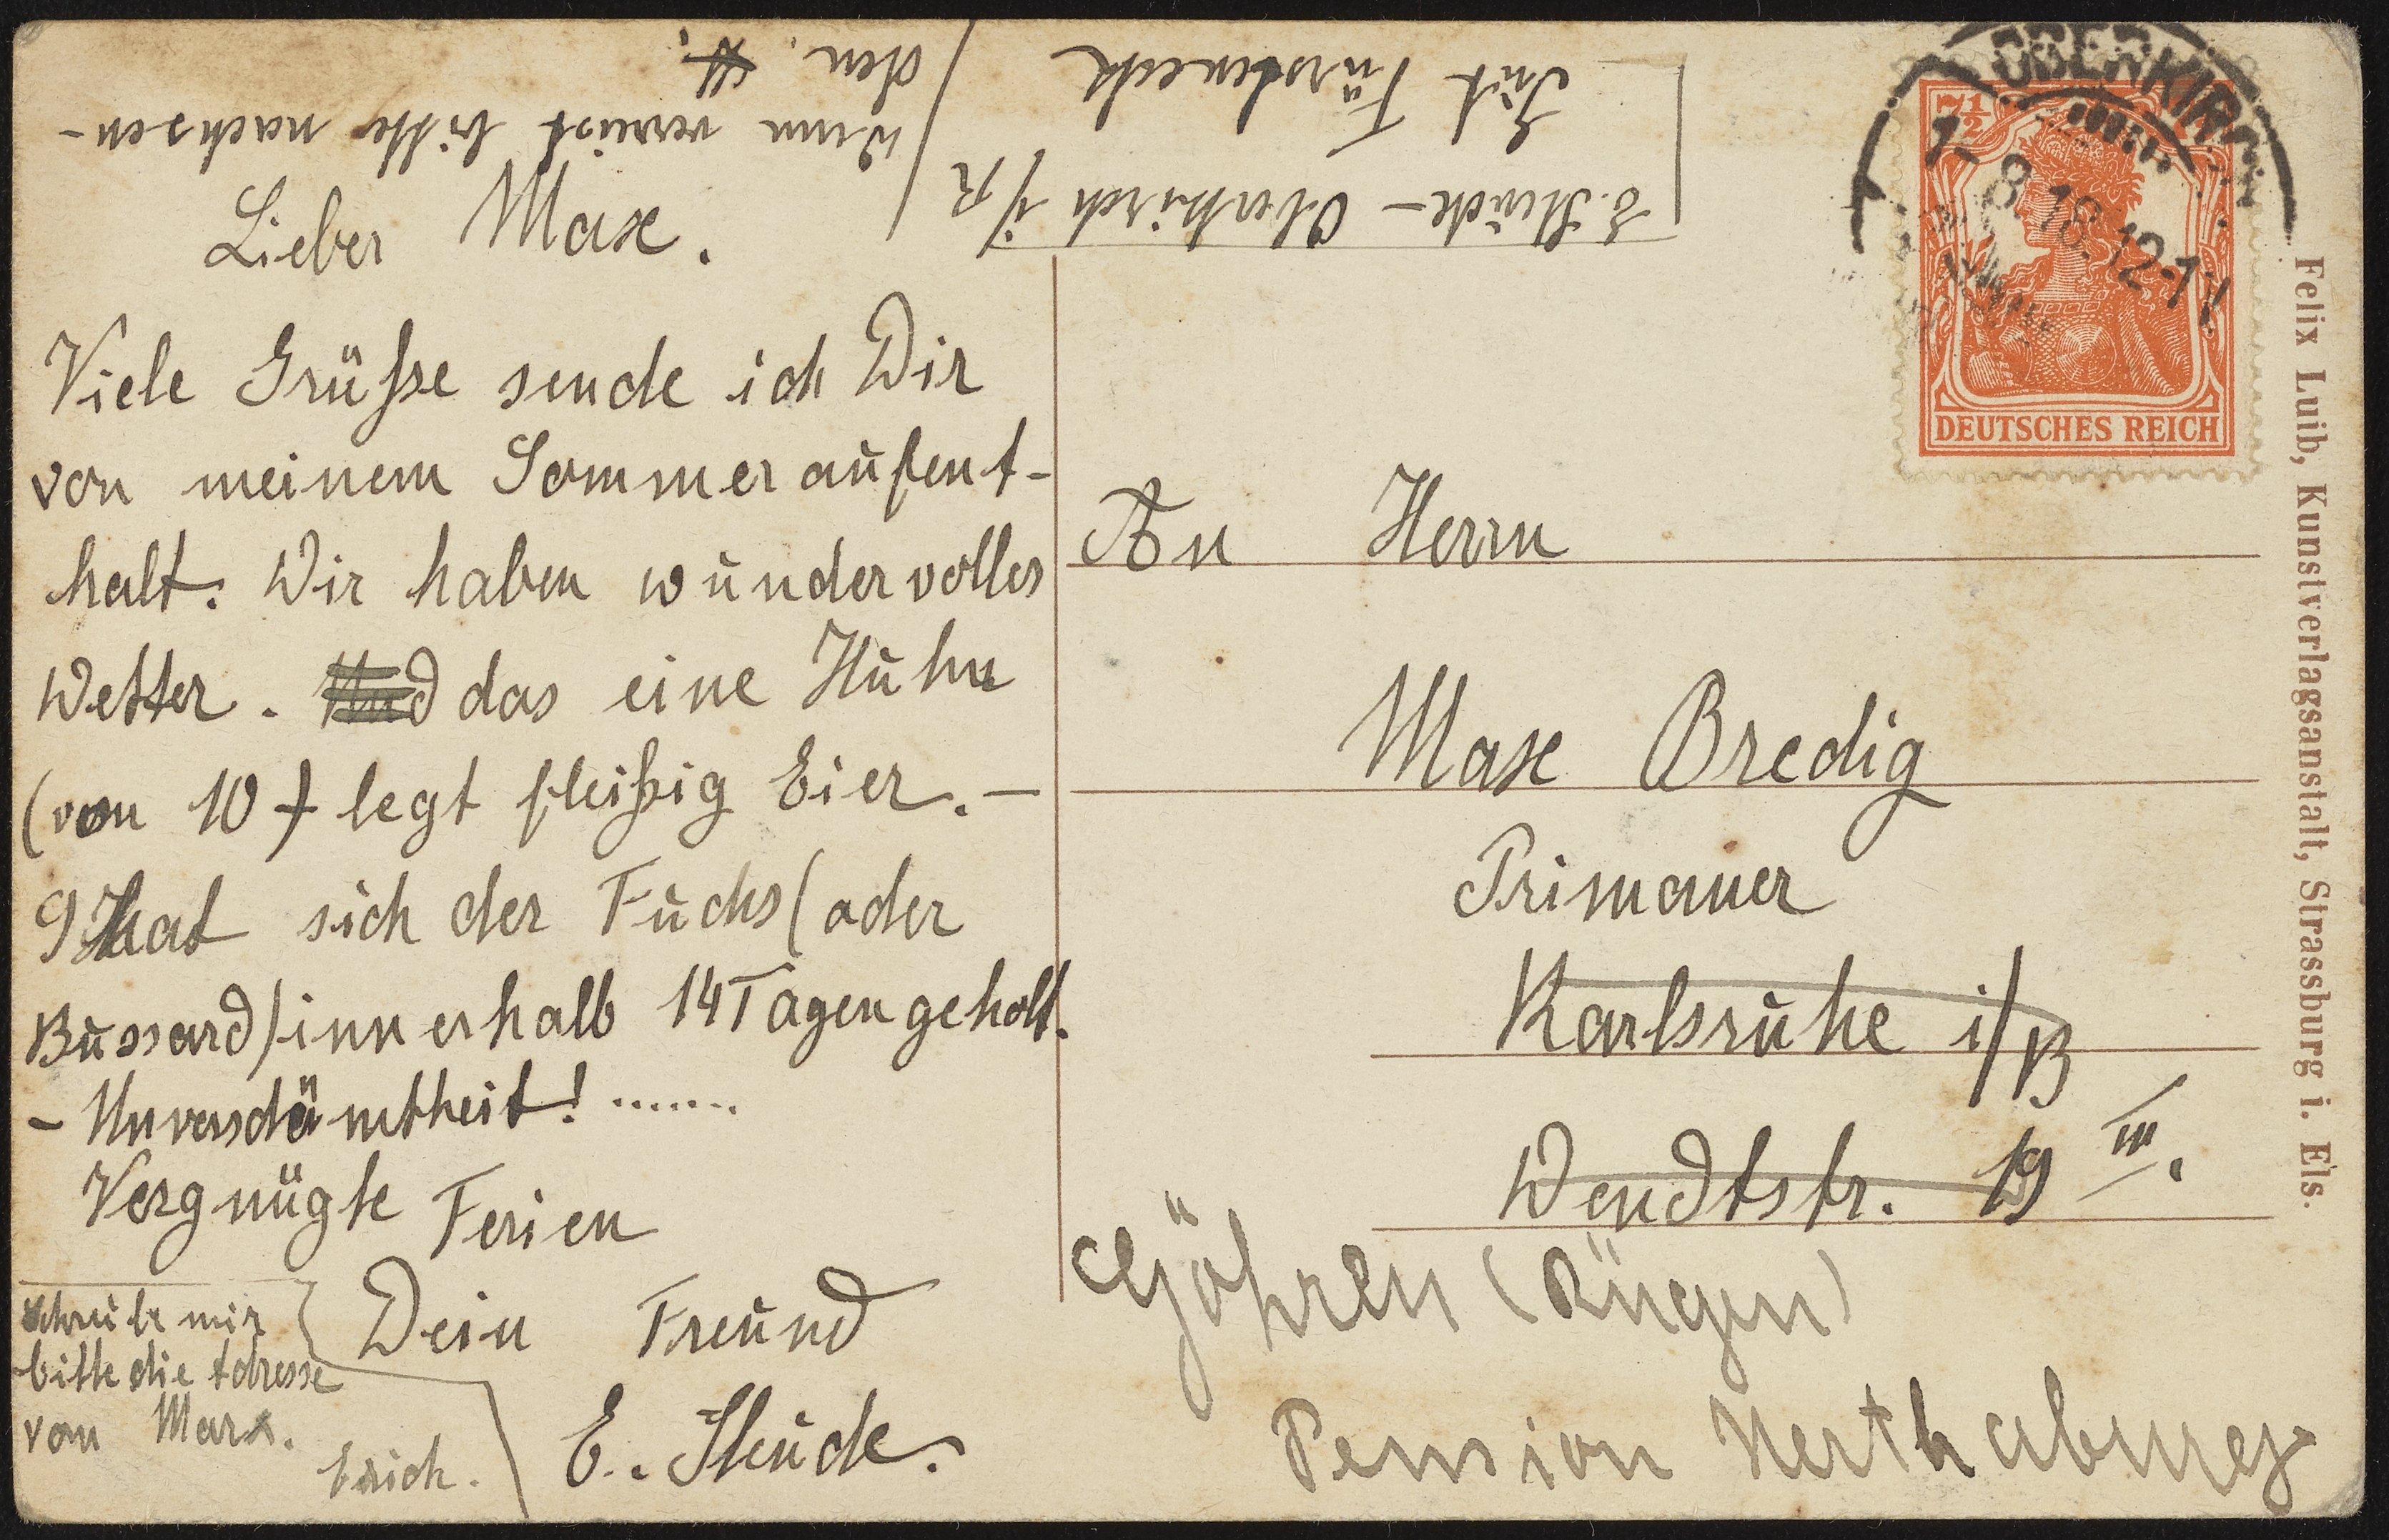 Wenn verreist bitte nachsen-
den.
E. Steude – Oberkirch i/R
Gut Fürsteneck
OBERKIRCH
7.8.18.12-1
7½
DEUTSCHES REICH
Lieber Max.
Viele Grüsse sende ich Dir
von meinem Sommeraufent-
halt. Wir haben wundervolles
Wetter. Und das eine Huhn
(von 10) legt fleißig Eier. –
9 hat sich der Fuchs (oder
Bussard) innerhalb 14 Tagen geholt.
– Unverschämtheit! .......
Vergnügte Ferien
Dein Freund
E. Steude.
Schreibe mir
bitte die Adresse
von Marx.
Erich.
An Herrn
Max Bredig
Primaner
Karlsruhe i/B
Wendtstr. 19 III.
Göhren (Rügen)
Pension Herthaburg
Felix Luib, Kunstverlagsanstalt, Strassburg i. Els.